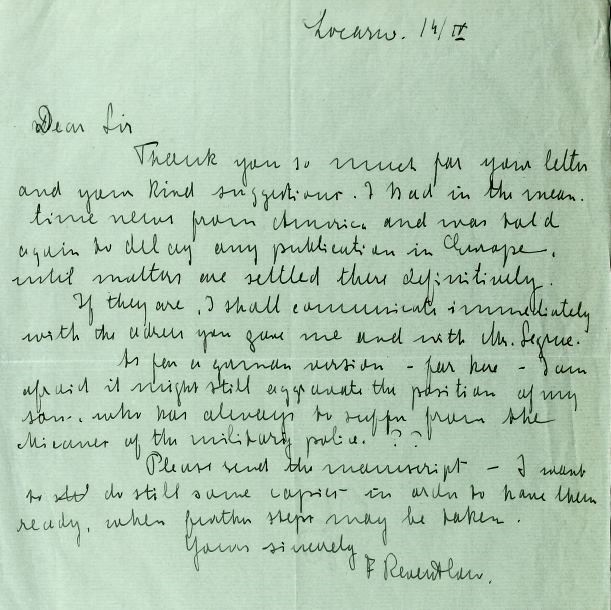 Locarno. 14/IV
Dear Sir
Thank you so much for your letter
and your kind suggestions. I had in the mean.
time news from America and was told
again to delay any publication in Europe,
until matters are settled there definitively.
If they are, I shall communicate immediately
with the adress you gave me and with Mr. Segrue.
As for a german version - for here - I am
afraid it might still aggravate the position of my
son, who has always to suffer from the
of the military police. ??
Please send the manuscript - I want
to do still some copies in order to have them
ready, when further steps may be taken.
Yours sincerely
F Reventlow.